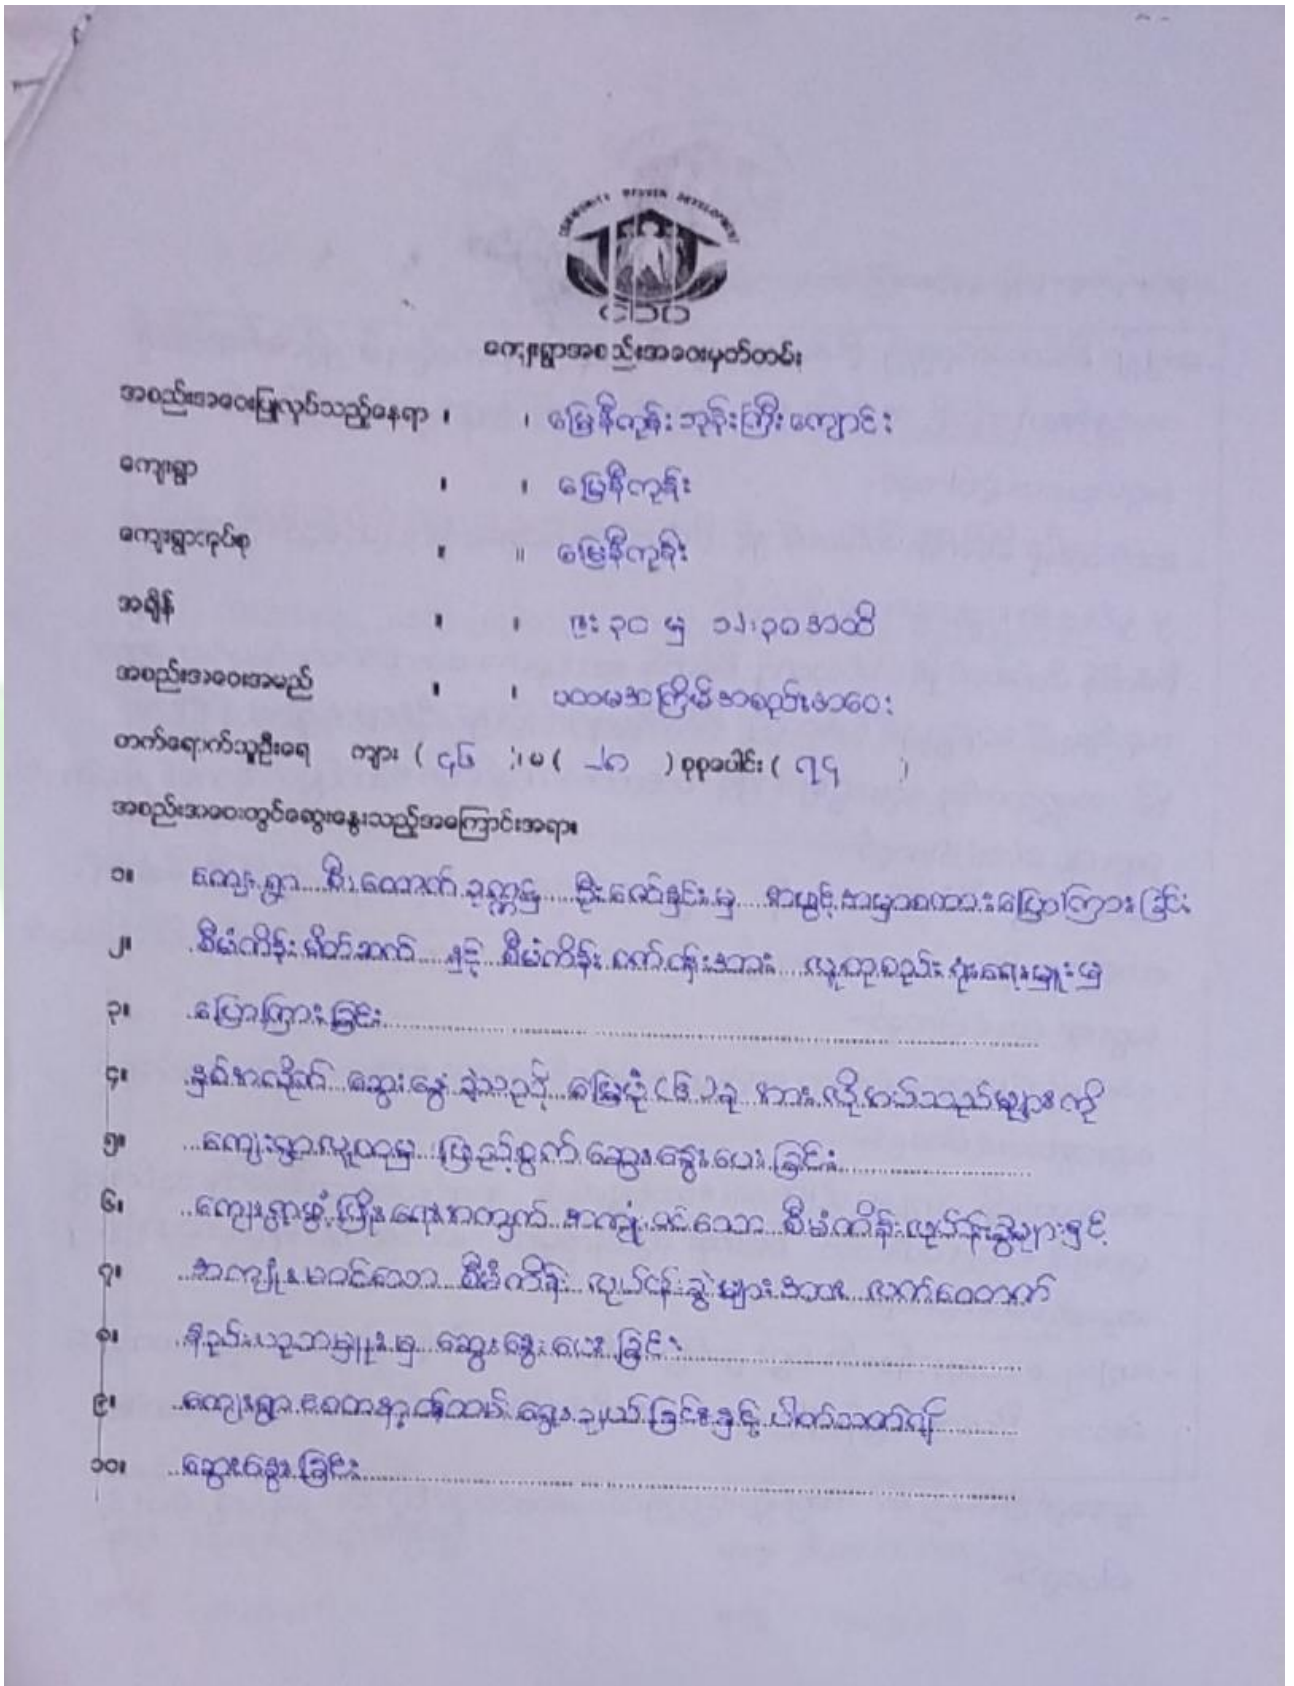 COMMUNITY DRIVEN DEVELOPMENT
ကျေးရွာအစည်းအဝေးမှတ်တမ်း
အစည်းအဝေးပြုလုပ်သည့်နေရာ ။ ။ မြေနီကုန်းဘုန်းကြီးကျောင်း
ကျေးရွာ ။ ။ မြေနီကုန်း
ကျေးရွာအုပ်စု ။ ။ မြေနီကုန်း
အချိန် ။ ။ ၉း၃၀ မှ ၁၂း၃၀ အထိ
အစည်းအဝေးအမည် ။ ။ ပထမအကြိမ်အစည်းအဝေး
တက်ရောက်သူဦးရေ ကျား ( ၄၆ ) မ ( ၂၈ ) စုစုပေါင်း ( ၇၄ )
အစည်းအဝေးတွင်ဆွေးနွေးသည့်အကြောင်းအရာ။
၁။ ကျေးရွာ ဥက္ကဋ္ဌ ဦးဇော်နှင်းမှ အဖွင့်အမှာစကားပြောကြားခြင်း
၂။ စီမံကိန်းမိတ်ဆက် နှင့် စီမံကိန်း အား လူထုစည်းရုံးရေးမှူးမှ
၃။ ပြောကြားခြင်း
၄။ နှစ်အလိုက် ဆွေးနွေးခဲ့သည့် မြေပုံ (၆) ခု အား လိုအပ်သည်များကို
၅။ ကျေးရွာလူထုမှ ဖြည့်စွက် ဆွေးနွေးပေးခြင်း
၆။ ကျေးရွာဖွံ့ဖြိုးရေးအတွက် အကျုံးဝင်သော စီမံကိန်းလုပ်ငန်းခွဲများနှင့်
၇။ အကျုံးမဝင်သော စီမံကိန်း လုပ်ငန်းခွဲများအား လက်ထောက်
၈။ နည်းပညာမှူးမှ ဆွေးနွေးပေးခြင်း
၉။ ကျေးရွာ စေတနာ့ဝန်ထမ်း ရွေးချယ်ခြင်းနှင့် ပါတ်သတ်၍
၁၀။ ဆွေးနွေးခြင်း